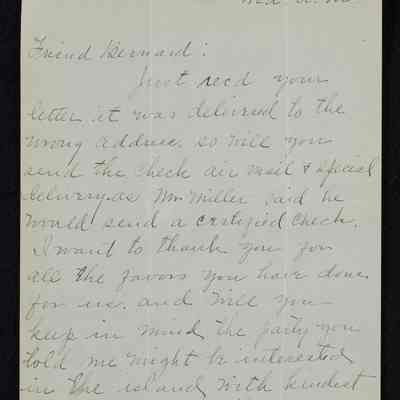 Friend Bernard:
Just recd your
letter it was delivered to the
wrong address. so will you
send the check air mail & special
delivery as Mr Miller said he
would send a certified check.
I want to thank you for
all the favors you have done
for us. and will you
keep in mind the party you
told me might be interested
in the island with kindest